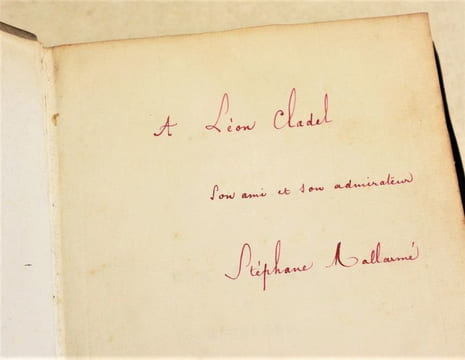 A Léon Cladel
son ami et son admirateur
Stéphane Mallarmé